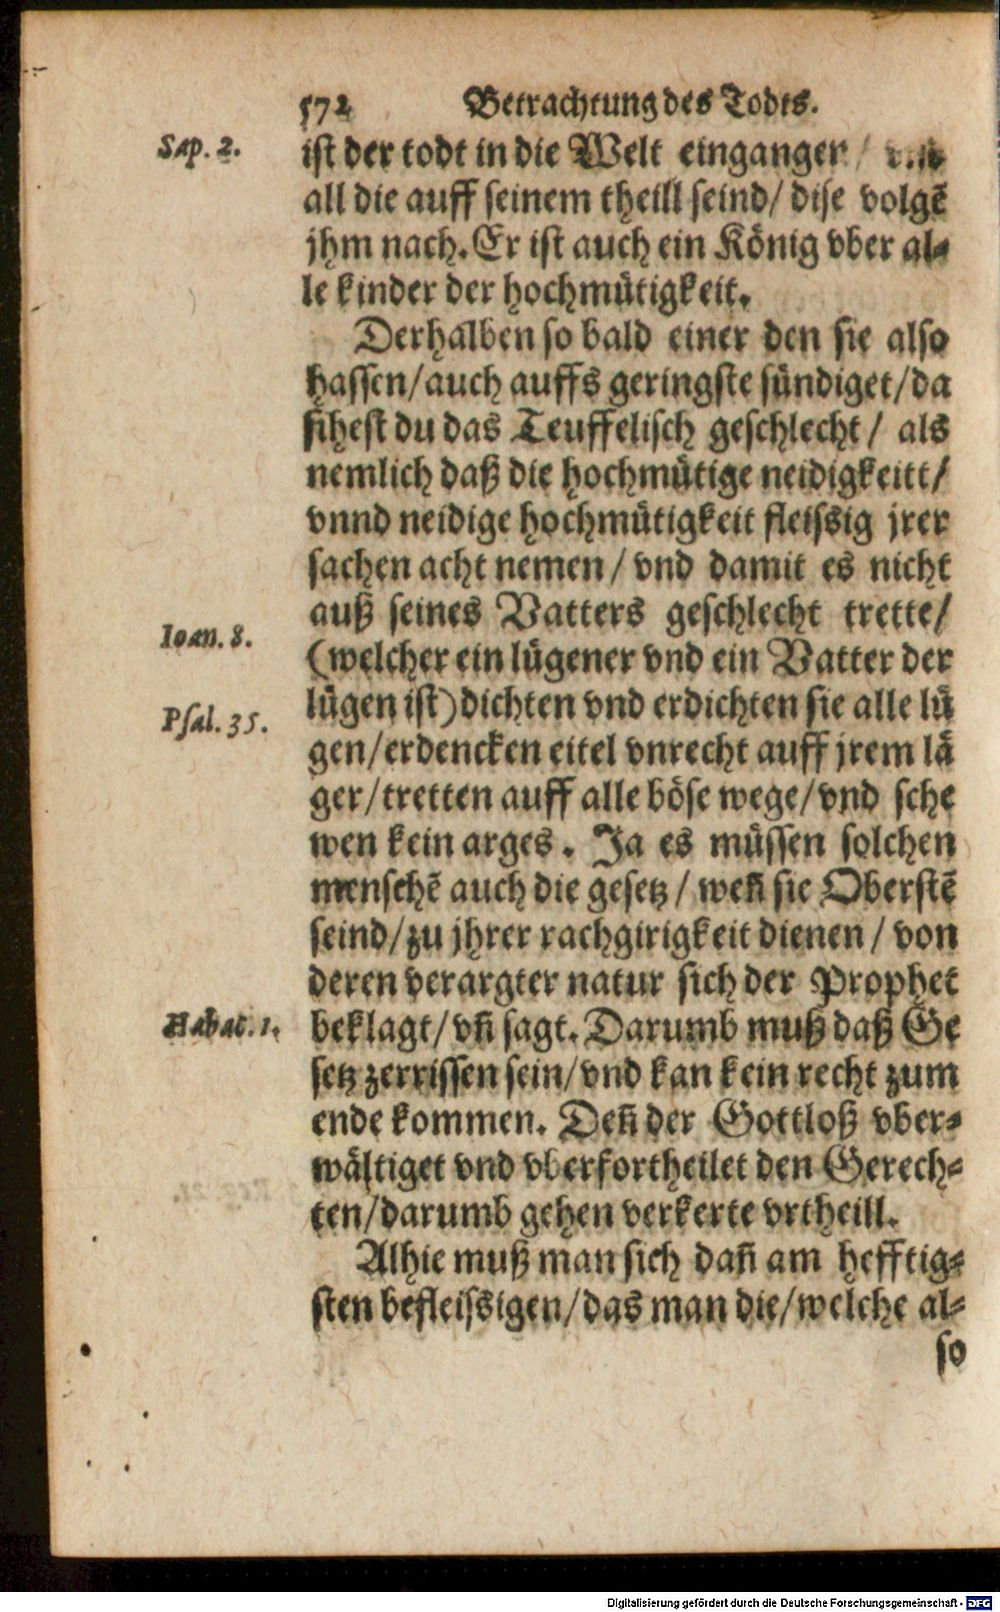 572 Betrachtung des Todts.
Sap. 2.
ist der todt in die Welt eingangen / vnd
all die auff seinem theill seind/ dise volgē
jhm nach. Er ist auch ein König vber al-
le kinder der hochmütigkeit.
Derhalben so bald einer den sie also
hassen/auch auffs geringste sündiget/da
sihest du das Teuffelisch geschlecht/ als
nemlich daß die hochmütige neidigkeitt/
vnnd neidige hochmütigkeit fleissig jrer
sachen acht nemen/ vnd damit es nicht
auß seines Vatters geschlecht trette/
Ioan. 8.
(welcher ein lügener vnd ein Vatter der
Psal. 35.
lügen ist) dichten vnd erdichten sie alle lü
gen/erdencken eitel vnrecht auff jrem lä
ger/tretten auff alle böse wege/vnd sche
wen kein arges. Ja es müssen solchen
menschē auch die gesetz/ weñ sie Oberstē
seind/zu jhrer rachgirigkeit dienen/ von
deren verargter natur sich der Prophet
Habac. 1.
beklagt/ vñ sagt. Darumb muß daß Ge
setz zerrissen sein/vnd kan kein recht zum
ende kommen. Deñ der Gottloß vber-
wältiget vnd vberfortheilet den Gerech-
ten/darumb gehen verkerte vrtheill.
Alhie muß man sich dañ am hefftig-
sten befleissigen/das man die/welche al-
so
Digitalisierung gefördert durch die Deutsche Forschungsgemeinschaft - DFG